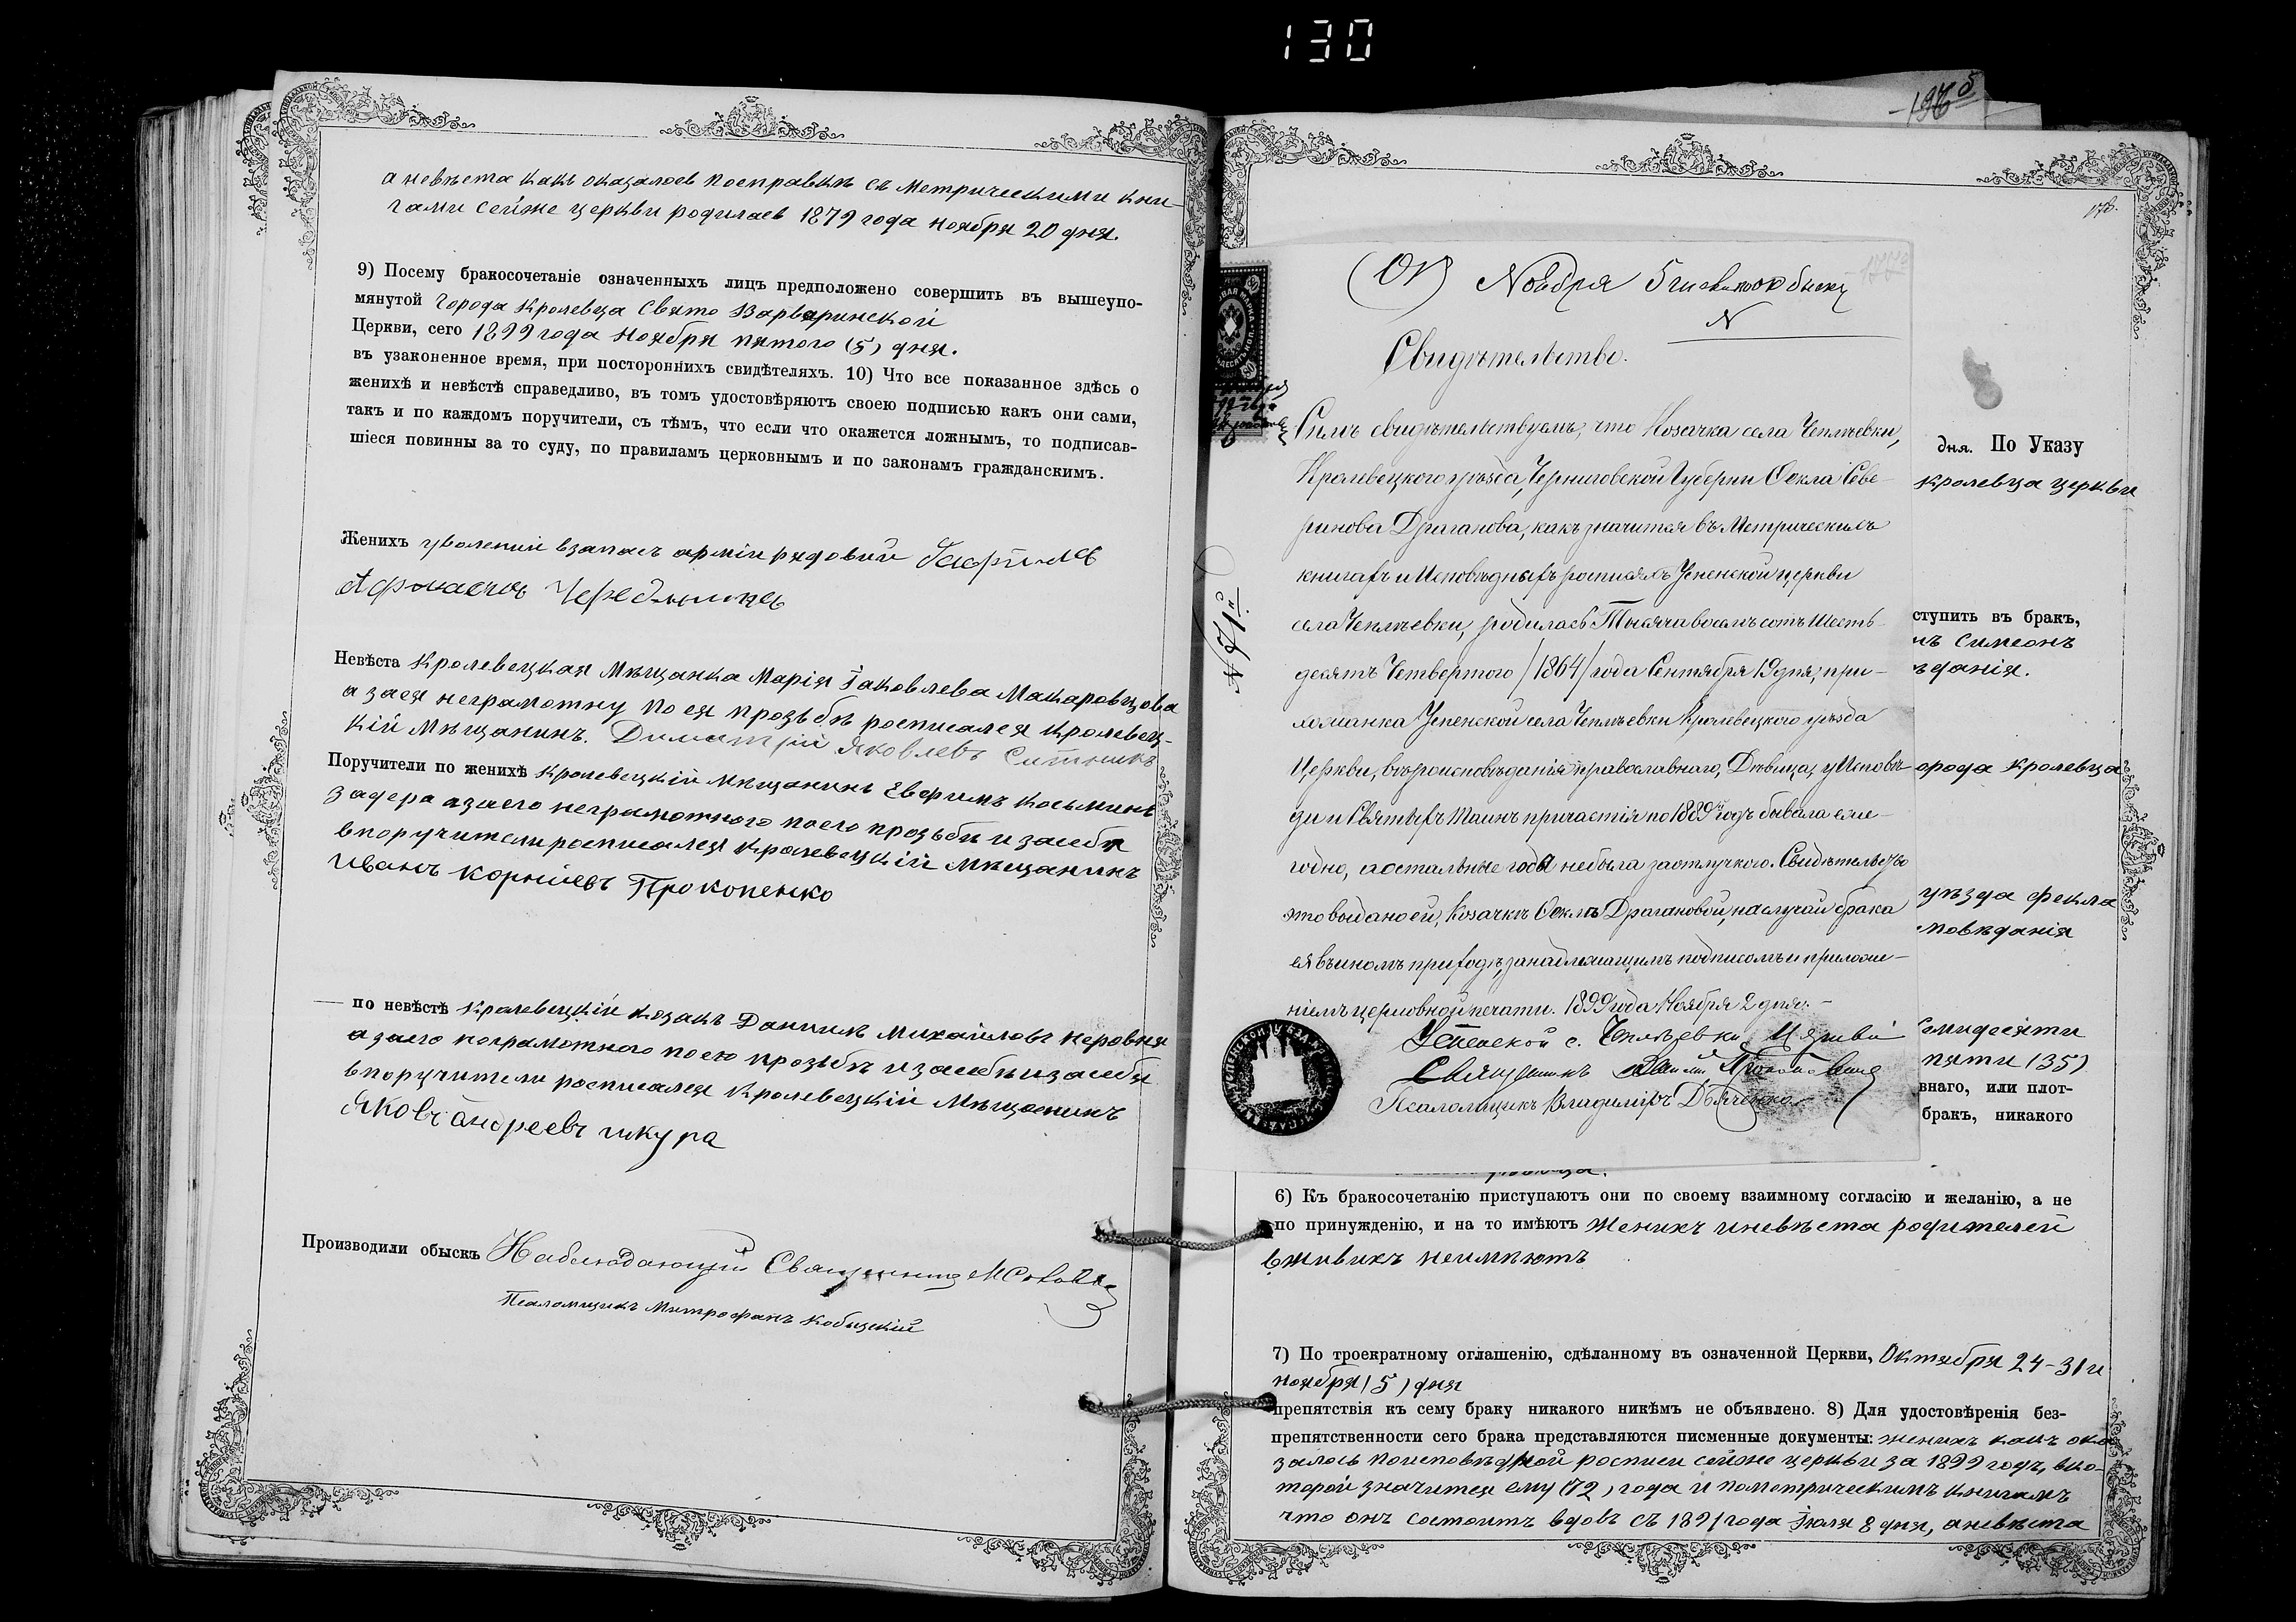 130
а невѣста какъ оказалось посправкѣ съ Метрическими кни-
гами сейже церкви родилась 1879 года ноября 20 дня.
9) Посему бракосочетаніе означенныхъ лицъ предположено совершить въ вышеупо-
мянутой города Кролевца Свято Варваринской
Церкви, сего 1899 года Ноября пятого (5) дня.
въ узаконенное время, при постороннихъ свидѣтеляхъ. 10) Что все показанное здѣсь о
женихѣ и невѣстѣ справедливо, въ томъ удостовѣряютъ своею подписью какъ они сами,
такъ и по каждомъ поручители, съ тѣмъ, что если что окажется ложнымъ, то подписав-
шіеся повинны за то суду, по правиламъ церковнымъ и по законамъ гражданскимъ.
Женихъ уволений взапасъ арміи рядовий Гаврiилъ
Невѣста Кролевецкая Мѣщанка Марія Іаковлева Макаровцова
а заея неграмотну по ея прозьбѣ росписался кролевец-
кій Мѣщанинъ. Димитрій Яковлевъ Ситникъ
Поручители по женихѣ Кролевецкій Мѣщанинъ Евфимъ Косьминъ
Задера азаего неграмотного поего прозьби изасебя
впоручители росписался Кролевецкій Мѣщанинъ
Иванъ Корнiевъ Прокопенко
по невѣстѣ Кролевецкій козакъ Даниилъ Михаиловъ Неровня
азаего неграмотного поего прозьбѣ изасебѣ изасебя
впоручители росписался Кролевецкій Мѣщанинъ
Яковъ андреевъ шкура
Производили обыскъ Наблюдающій Священникъ
Псаломщикъ Митрофанъ Кобыцкій
178.
Ноября 5
N
Свидѣтельство.
Симъ свидѣтельствуемъ, что Козачка села Чеплѣевки,
Кролевецкого уѣзда, Черниговской Губерніи Ѳекла Севе-
ринова Драганова, какъ значится въ Метрическихъ
книгахъ и Исповѣдныхъ росписяхъ Успенской церкви
села Чеплѣевки, родилась Тысяча восемъ сотъ Шесть-
десятъ Четвертого /1864/ года Сентября 19 дня, при-
хожанка Успенской села Чеплѣевки Кролевецкого уѣзда
Церкви, вѣроисповѣданія православнаго, Дѣвица, у Исповѣ-
ди и Святыхъ Таинъ причастія по 1889й годъ бывала еже-
годно, а остальные года небыла заотлучкою. Свидѣтельство
это выдано ей, Козачкѣ Ѳеклѣ Драгановой, на случай брака
ея въ иномъ приходѣ, за надлежащимъ подписомъ и приложе-
ніемъ церковной печати. 1899 года Ноября 2 дня.-
Успенской с. Чеплѣевки Церкви
Священникъ
Псаломщикъ Владиміръ Дьяченко
дня. По Указу
кролевца церкви
ступить въ бракъ,
мъ Симеонъ
ѣданія.
орода Кролевца
уѣзда Фекла
повѣданія
семидесяти
пяти (35)
внаго, или плот-
бракъ, никакого
6) Къ бракосочетанію приступаютъ они по своему взаимному согласію и желанію, а не
по принужденію, и на то имѣютъ Женихъ иневѣста родителей
вживихъ неимѣютъ
7) По троекратному оглашенію, сдѣланному въ означенной Церкви, Октября 24-31 и
ноября (5) дня
препятствія къ сему браку никакого никѣмъ не объявлено. 8) Для удостовѣренія без-
препятственности сего брака представляются писменные документы: женихъ какъ ока
залось поисповѣдной росписи сейже церкви за 1899 годъ, вко-
торой значится ему (72) года и пометрическимъ книгамъ
что онъ состоитъ вдовъ съ 1891 года Іюля 8 дня, аневѣста